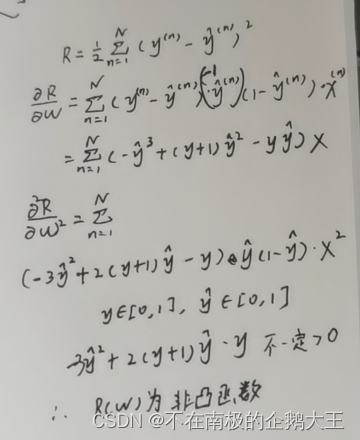 R = \frac{1}{2} \sum_{n=1}^{N} (y^{(n)} - \hat{y}^{(n)})^2
\frac{\partial R}{\partial W} = \sum_{n=1}^{N} (y^{(n)} - \hat{y}^{(n)}) (-1 \hat{y}^{(n)}) (1 - \hat{y}^{(n)}) \cdot x^{(n)}
= \sum_{n=1}^{N} (-\hat{y}^3 + (y+1) \hat{y}^2 - y\hat{y}) x
\frac{\partial^2 R}{\partial W^2} = \sum_{n=1}^{N}
(-3\hat{y}^2 + 2(y+1)\hat{y} - y) \hat{y} (1-\hat{y}) \cdot x^2
y∈[0,1], \hat{y}∈[0,1]
-3\hat{y}^2 + 2(y+1)\hat{y} - y 不一定>0
∴ R(W)为非凸函数
CSDN @不在南极的企鹅大王